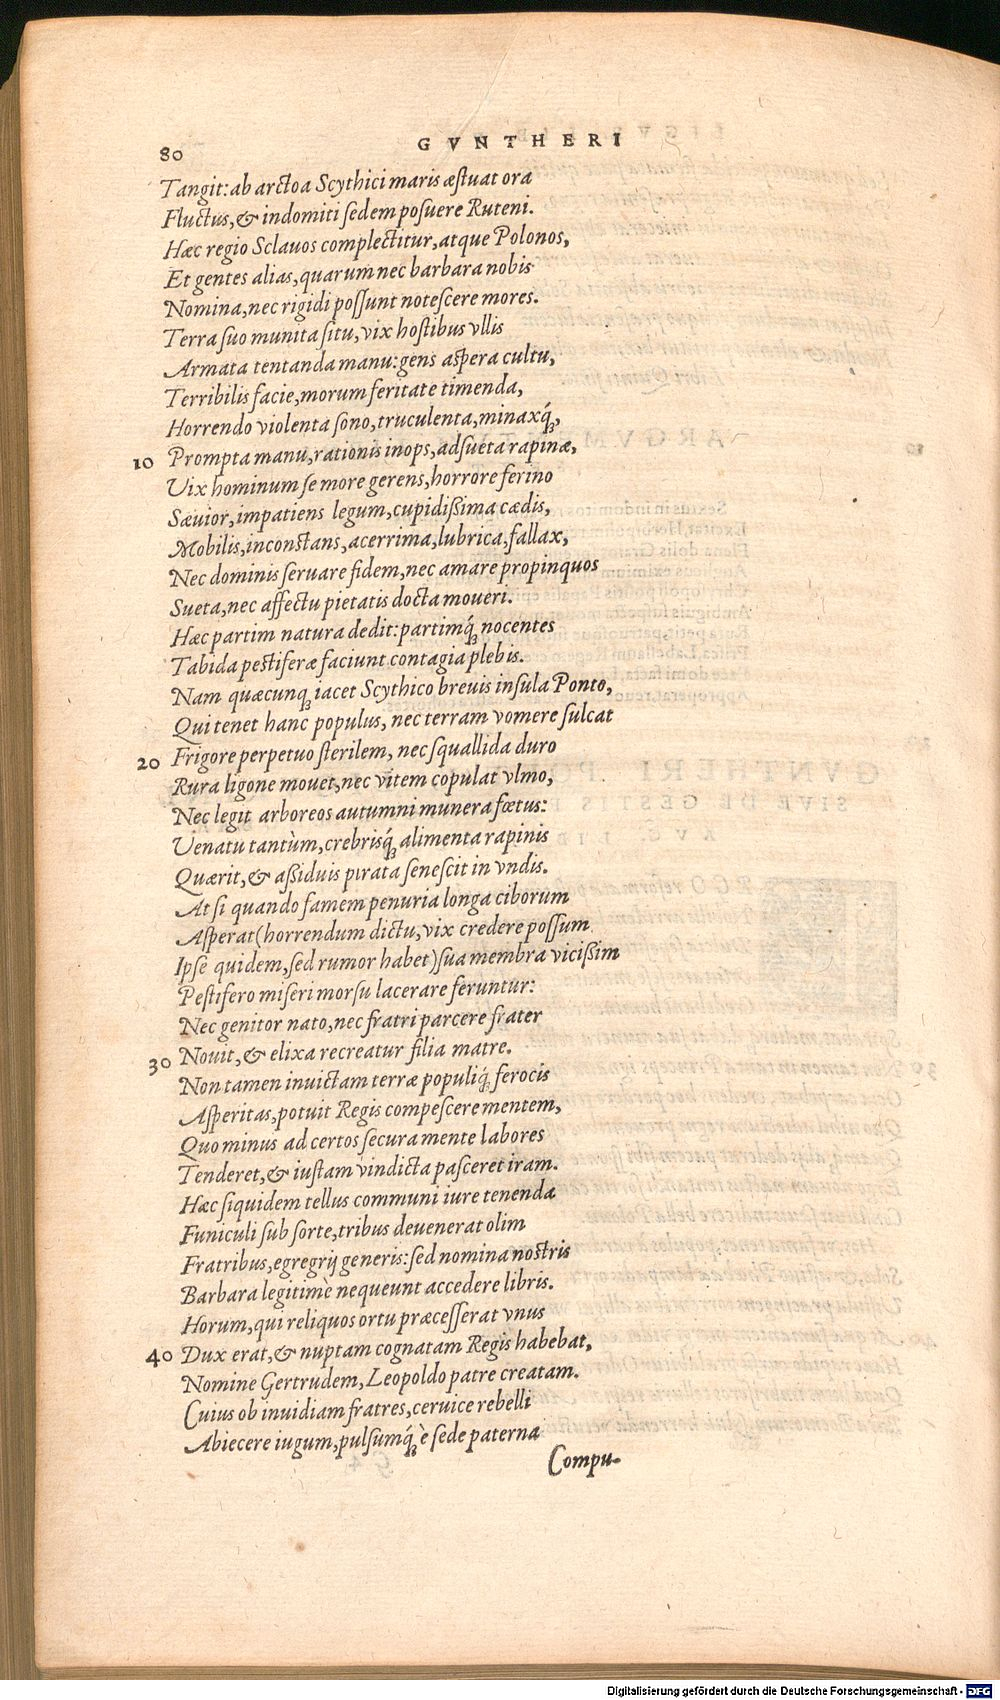 80 GVNTHERI
Tangit: ab arctoa Scythici maris æstuat ora
Fluctus, & indomiti sedem posuere Ruteni.
Hæc regio Sclauos complectitur, atque Polonos,
Et gentes alias, quarum nec barbara nobis
Nomina, nec rigidi possunt notescere mores.
Terra suo munita situ, vix hostibus vllis
Armata tentanda manu: gens aspera cultu,
Terribilis facie, morum feritate timenda,
Horrendo violenta sono, truculenta, minaxq́;,
10 Prompta manu, rationis inops, adsueta rapinæ,
Uix hominum se more gerens, horrore ferino
Sæuior, impatiens legum, cupidißima cædis,
Mobilis, inconstans, acerrima, lubrica, fallax,
Nec dominis seruare fidem, nec amare propinquos
Sueta, nec affectu pietatis docta moueri.
Hæc partim natura dedit: partimq́; nocentes
Tabida pestiferæ faciunt contagia plebis.
Nam quæcunq; iacet Scythico breuis insula Ponto,
Qui tenet hanc populus, nec terram vomere sulcat
20 Frigore perpetuo sterilem, nec squallida duro
Rura ligone mouet, nec vitem copulat vlmo,
Nec legit arboreos autumni munera fœtus:
Uenatu tantùm, crebrisq́; alimenta rapinis
Quærit, & aßiduis pirata senescit in vndis.
At si quando famem penuria longa ciborum
Asperat (horrendum dictu, vix credere possum
Ipse quidem, sed rumor habet) sua membra vicißim
Pestifero miseri morsu lacerare feruntur:
Nec genitor nato, nec fratri parcere frater
30 Nouit, & elixa recreatur filia matre.
Non tamen inuictam terræ populiq́; ferocis
Asperitas, potuit Regis compescere mentem,
Quo minus ad certos secura mente labores
Tenderet, & iustam vindicta pasceret iram.
Hæc siquidem tellus communi iure tenenda
Funiculi sub sorte, tribus deuenerat olim
Fratribus, egregrij generis: sed nomina nostris
Barbara legitimè nequeunt accedere libris.
Horum, qui reliquos ortu præcesserat vnus
40 Dux erat, & nuptam cognatam Regis habebat,
Nomine Gertrudem, Leopoldo patre creatam.
Cuius ob inuidiam fratres, ceruice rebelli
Abiecere iugum, pulsumq́; è sede paterna
Compu-
Digitalisierung gefördert durch die Deutsche Forschungsgemeinschaft - DFG